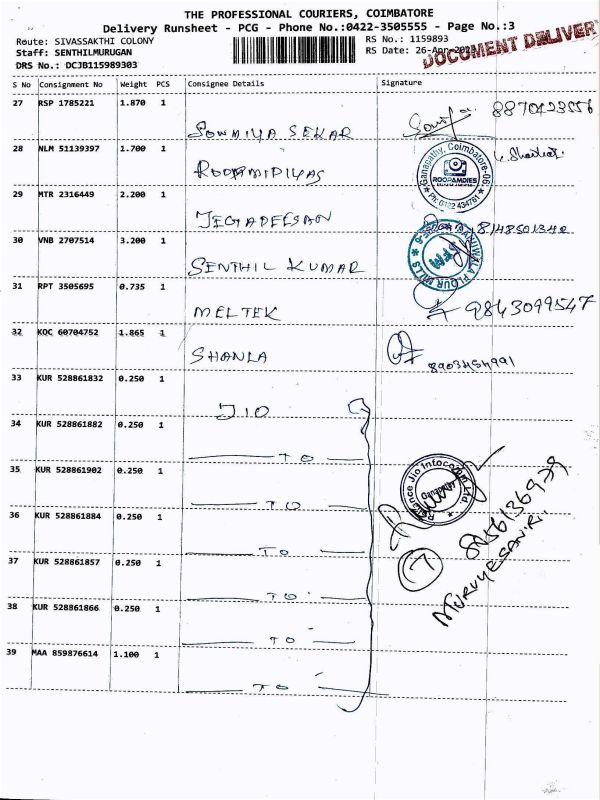 THE PROFESSIONAL COURIERS, COIMBATORE
Delivery Runsheet - PCG - Phone No.:0422-3505555 - Page No.:3
Route: SIVASSAKTHI COLONY RS No.: 1159893
Staff: SENTHILMURUGAN RS Date: 26-Apr-2023
DRS No.: DCJB115989303
DOCUMENT DELIVER
S No Consignment No Weight PCS Consignee Details Signature
27 RSP 1785221 1.870 1
SOWMIYA SEKAR
28 NLM 51139397 1.700 1
Ganapathy, Coimbatore-06
ROOPAMDIES
29 MTR 2316449 2.200 1
JEGADEESAN 8148501340
30 VNB 2707514 3.200 1
SENTHIL KUMAR
FLOUR MILLS
31 RPT 3505695 0.735 1
MELTEK 9843099547
32 KOC 60704752 1.865 1
33 KUR 528861832 0.250 1
JIO
34 KUR 528861882 0.250 1
TO
35 KUR 528861902 0.250 1
TO
Reliance Jio Infocomm Ltd
36 KUR 528861884 0.250 1
TO
37 KUR 528861857 0.250 1
TO
7
38 KUR 528861866 0.250 1
TO
39 MAA 859876614 1.100 1
TO